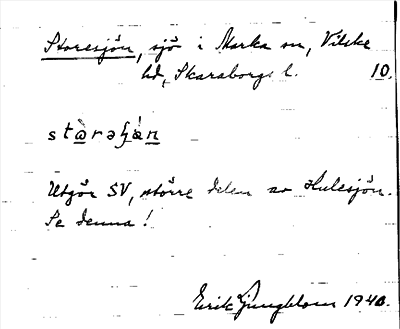 Storesjön, sjö i Marka sn, Vilske
hd, Skaraborgs l. 10.
Utgör SV, större delen av Hulesjön.
Se denna!
Erik Ljungblom 1940.